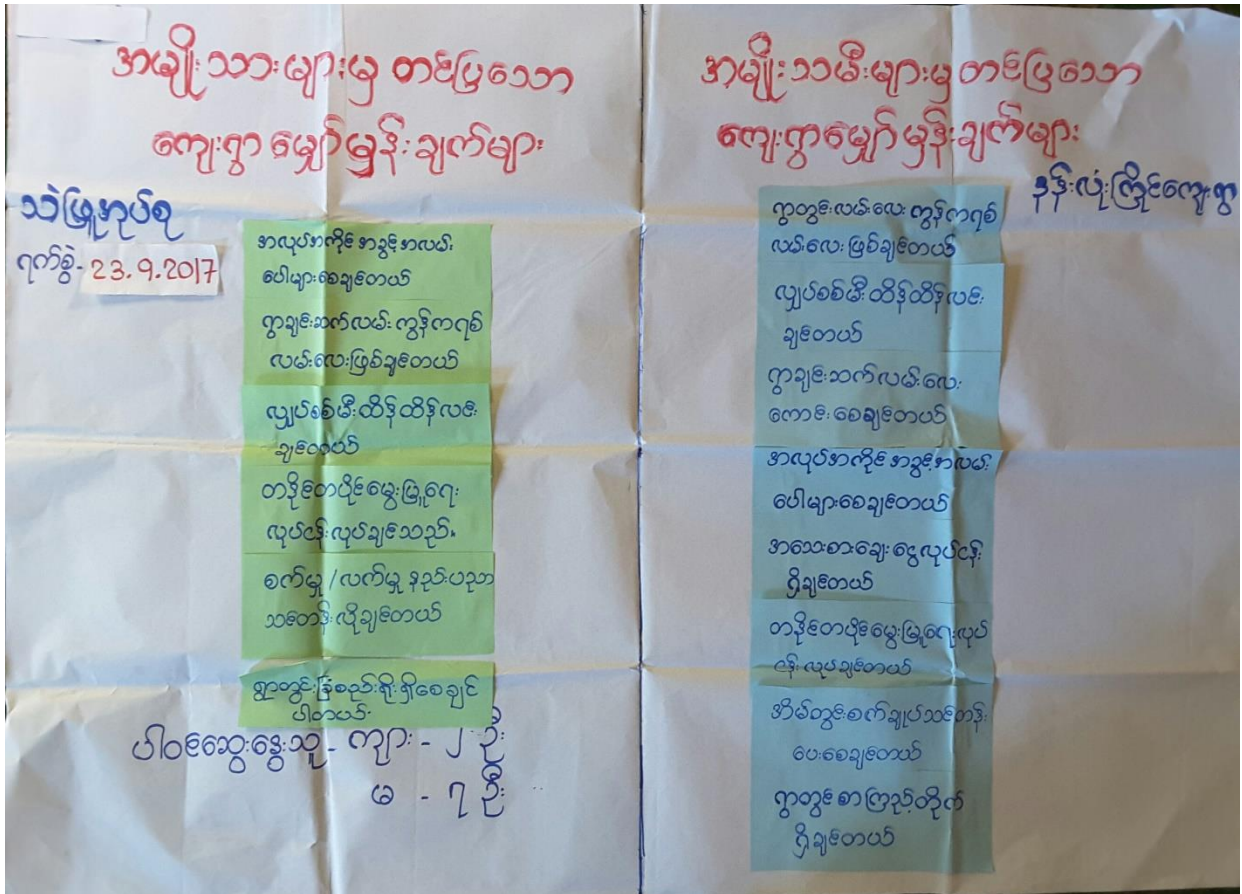 အမျိုးသားများမှ တင်ပြသော
ကျေးရွာ မျှော်မှန်းချက်များ
သဲဖြူအုပ်စု
ရက်စွဲ- 23.9.2017
အလုပ်အကိုင် အခွင့်အလမ်း
ပေါများစေချင်တယ်
ရွာချင်းဆက်လမ်း ကွန်ကရစ်
လမ်းလေးဖြစ်ချင်တယ်
လျှပ်စစ်မီးထိန်ထိန်လင်း
ချင်တယ်
တနိုင်တပိုင်မွေးမြူရေး
လုပ်ငန်းလုပ်ချင်သည်။
စက်မှု/လက်မှု နည်းပညာ
သင်တန်းလိုချင်တယ်
ရွာတွင်းခြံစည်းရိုးရှိစေချင်
ပါတယ်
ပါဝင်ဆွေးနွေးသူ - ကျား - ၂ ဦး
မ - ၇ ဦး
အမျိုးသမီးများမှ တင်ပြသော
ကျေးရွာမျှော်မှန်းချက်များ
နန်းလုံးကြိုင်ကျေးရွာ
ရွာတွင်းလမ်းလေးကွန်ကရစ်
လမ်းလေးဖြစ်ချင်တယ်
လျှပ်စစ်မီးထိန်ထိန်လင်း
ချင်တယ်
ရွာချင်းဆက်လမ်းလေး
ကောင်းစေချင်တယ်
အလုပ်အကိုင်အခွင့်အလမ်း
ပေါများစေချင်တယ်
အသေးစားချေးငွေလုပ်ငန်း
ရှိချင်တယ်
တနိုင်တပိုင်မွေးမြူရေးလုပ်
ငန်းလုပ်ချင်တယ်
အိမ်တွင်းစက်ချုပ်သင်တန်း
ပေးစေချင်တယ်
ရွာတွင်စာကြည့်တိုက်
ရှိချင်တယ်